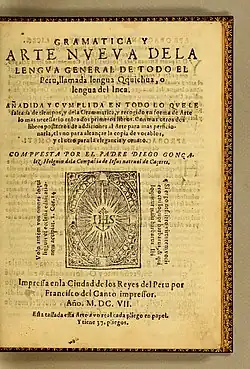 GRAMATICA Y
ARTE NVEVA DELA
LENGVA GENERAL DE TODO EL
Peru, llamada lengua Qquichua, o
lengua del Inca.
AÑADIDA Y CVMPLIDA EN TODO LO QVE LE
faltaua de tiempos, y de la Grammatica, y recogido en forma de Arte
lo mas necessario en los dos primeros libros. Con mas otros dos
libros postreros de addiciones al Arte para mas perficio-
narla, el vno para alcançar la copia de vocablos,
y el otro para la elegancia y ornato.
COMPVESTA POR EL PADRE DIEGO GONÇA
lez Holguin de la Compañia de Iesus natural de Caçeres.
IHS
Impressa en la Ciudad de los Reyes del Peru por
Francisco del Canto impressor.
Año. M. DC. VII.
Esta tassada esta Arte a vn real cada pliego en papel.
Y tiene 37. pliegos.